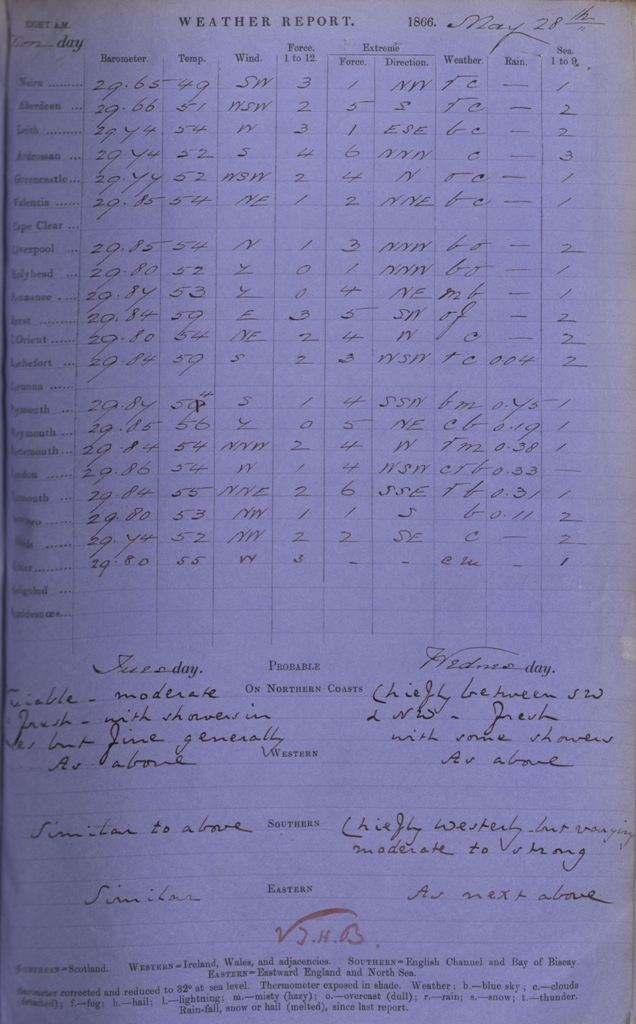 EIGHT A.M. WEATHER REPORT. 1866. May 28th
Monday
Barometer. Temp. Wind. Force. 1 to 12. Extreme Force. Direction. Weather. Rain. Sea. 1 to 9.
Nairn 29.65 49 SW 3 1 NW r c — 1
Aberdeen 29.66 51 WSW 2 5 S r c — 2
Leith 29.74 54 W 3 1 ESE b c — 2
Ardrossan 29.74 52 S 4 6 NNW c — 3
Greencastle 29.77 52 WSW 2 4 N o c — 1
Valentia 29.85 54 NE 1 2 NNE b c — 1
Cape Clear
Liverpool 29.85 54 N 1 3 NNW b o — 2
Holyhead 29.80 52 Z 0 1 NNW b o — 1
Penzance 29.87 53 Z 0 4 NE m b — 1
Brest 29.84 59 E 3 5 SW o f — 2
L'Orient 29.80 54 NE 2 4 W c — 2
Rochefort 29.84 59 S 2 3 WSW r c 0.04 2
Corunna
Plymouth 29.87 54 S 1 4 SSW b m 0.45 1
Weymouth 29.85 56 Z 0 5 NE c b 0.19 1
Portsmouth 29.84 54 NNW 2 4 W r m 0.38 1
London 29.86 54 W 1 4 WSW c r b 0.33 —
Yarmouth 29.84 55 NNE 2 6 SSE r b 0.31 1
Scarboro 29.80 53 NW 1 1 S b 0.11 2
Shields 29.74 52 NW 2 2 SE c — 2
Helder 29.80 55 W 3 - - c m — 1
Heligoland
Skuddesness
Tuesday. PROBABLE Wednesday.
Variable - moderate ON NORTHERN COASTS Chiefly between SW
fresh - with showers in & NW - fresh
but fine generally with some showers
As above WESTERN As above
Similar to above SOUTHERN Chiefly Westerly - but varying
moderate to strong
Similar EASTERN As next above
J.H.B.
NORTHERN=Scotland. WESTERN=Ireland, Wales, and adjacencies. SOUTHERN=English Channel and Bay of Biscay.
EASTERN=Eastward England and North Sea.
Barometer corrected and reduced to 32° at sea level. Thermometer exposed in shade. Weather: b.—blue sky; c.—clouds
(detached); f.—fog; h.—hail; l.—lightning; m.—misty (hazy); o.—overcast (dull); r.—rain; s.—snow; t.—thunder.
Rain-fall, snow or hail (melted), since last report.